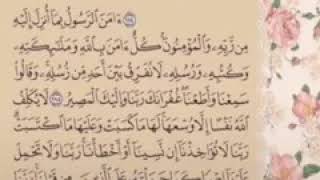 ءَامَنَ الرَّسُولُ بِمَا أُنزِلَ إِلَيْهِ
مِن رَّبِّهِ وَالْمُؤْمِنُونَ كُلٌّ ءَامَنَ بِاللَّهِ وَمَلَٰٓئِكَتِهِ
وَكُتُبِهِ وَرُسُلِهِ لَا نُفَرِّقُ بَيْنَ أَحَدٍ مِّن رُّسُلِهِ وَقَالُوا
سَمِعْنَا وَأَطَعْنَا غُفْرَانَكَ رَبَّنَا وَإِلَيْكَ الْمَصِيرُ ٢٨٥ لَا يُكَلِّفُ
اللَّهُ نَفْسًا إِلَّا وُسْعَهَا لَهَا مَا كَسَبَتْ وَعَلَيْهَا مَا اكْتَسَبَتْ
رَبَّنَا لَا تُؤَاخِذْنَا إِن نَّسِينَا أَوْ أَخْطَأْنَا رَبَّنَا وَلَا تَحْمِلْ